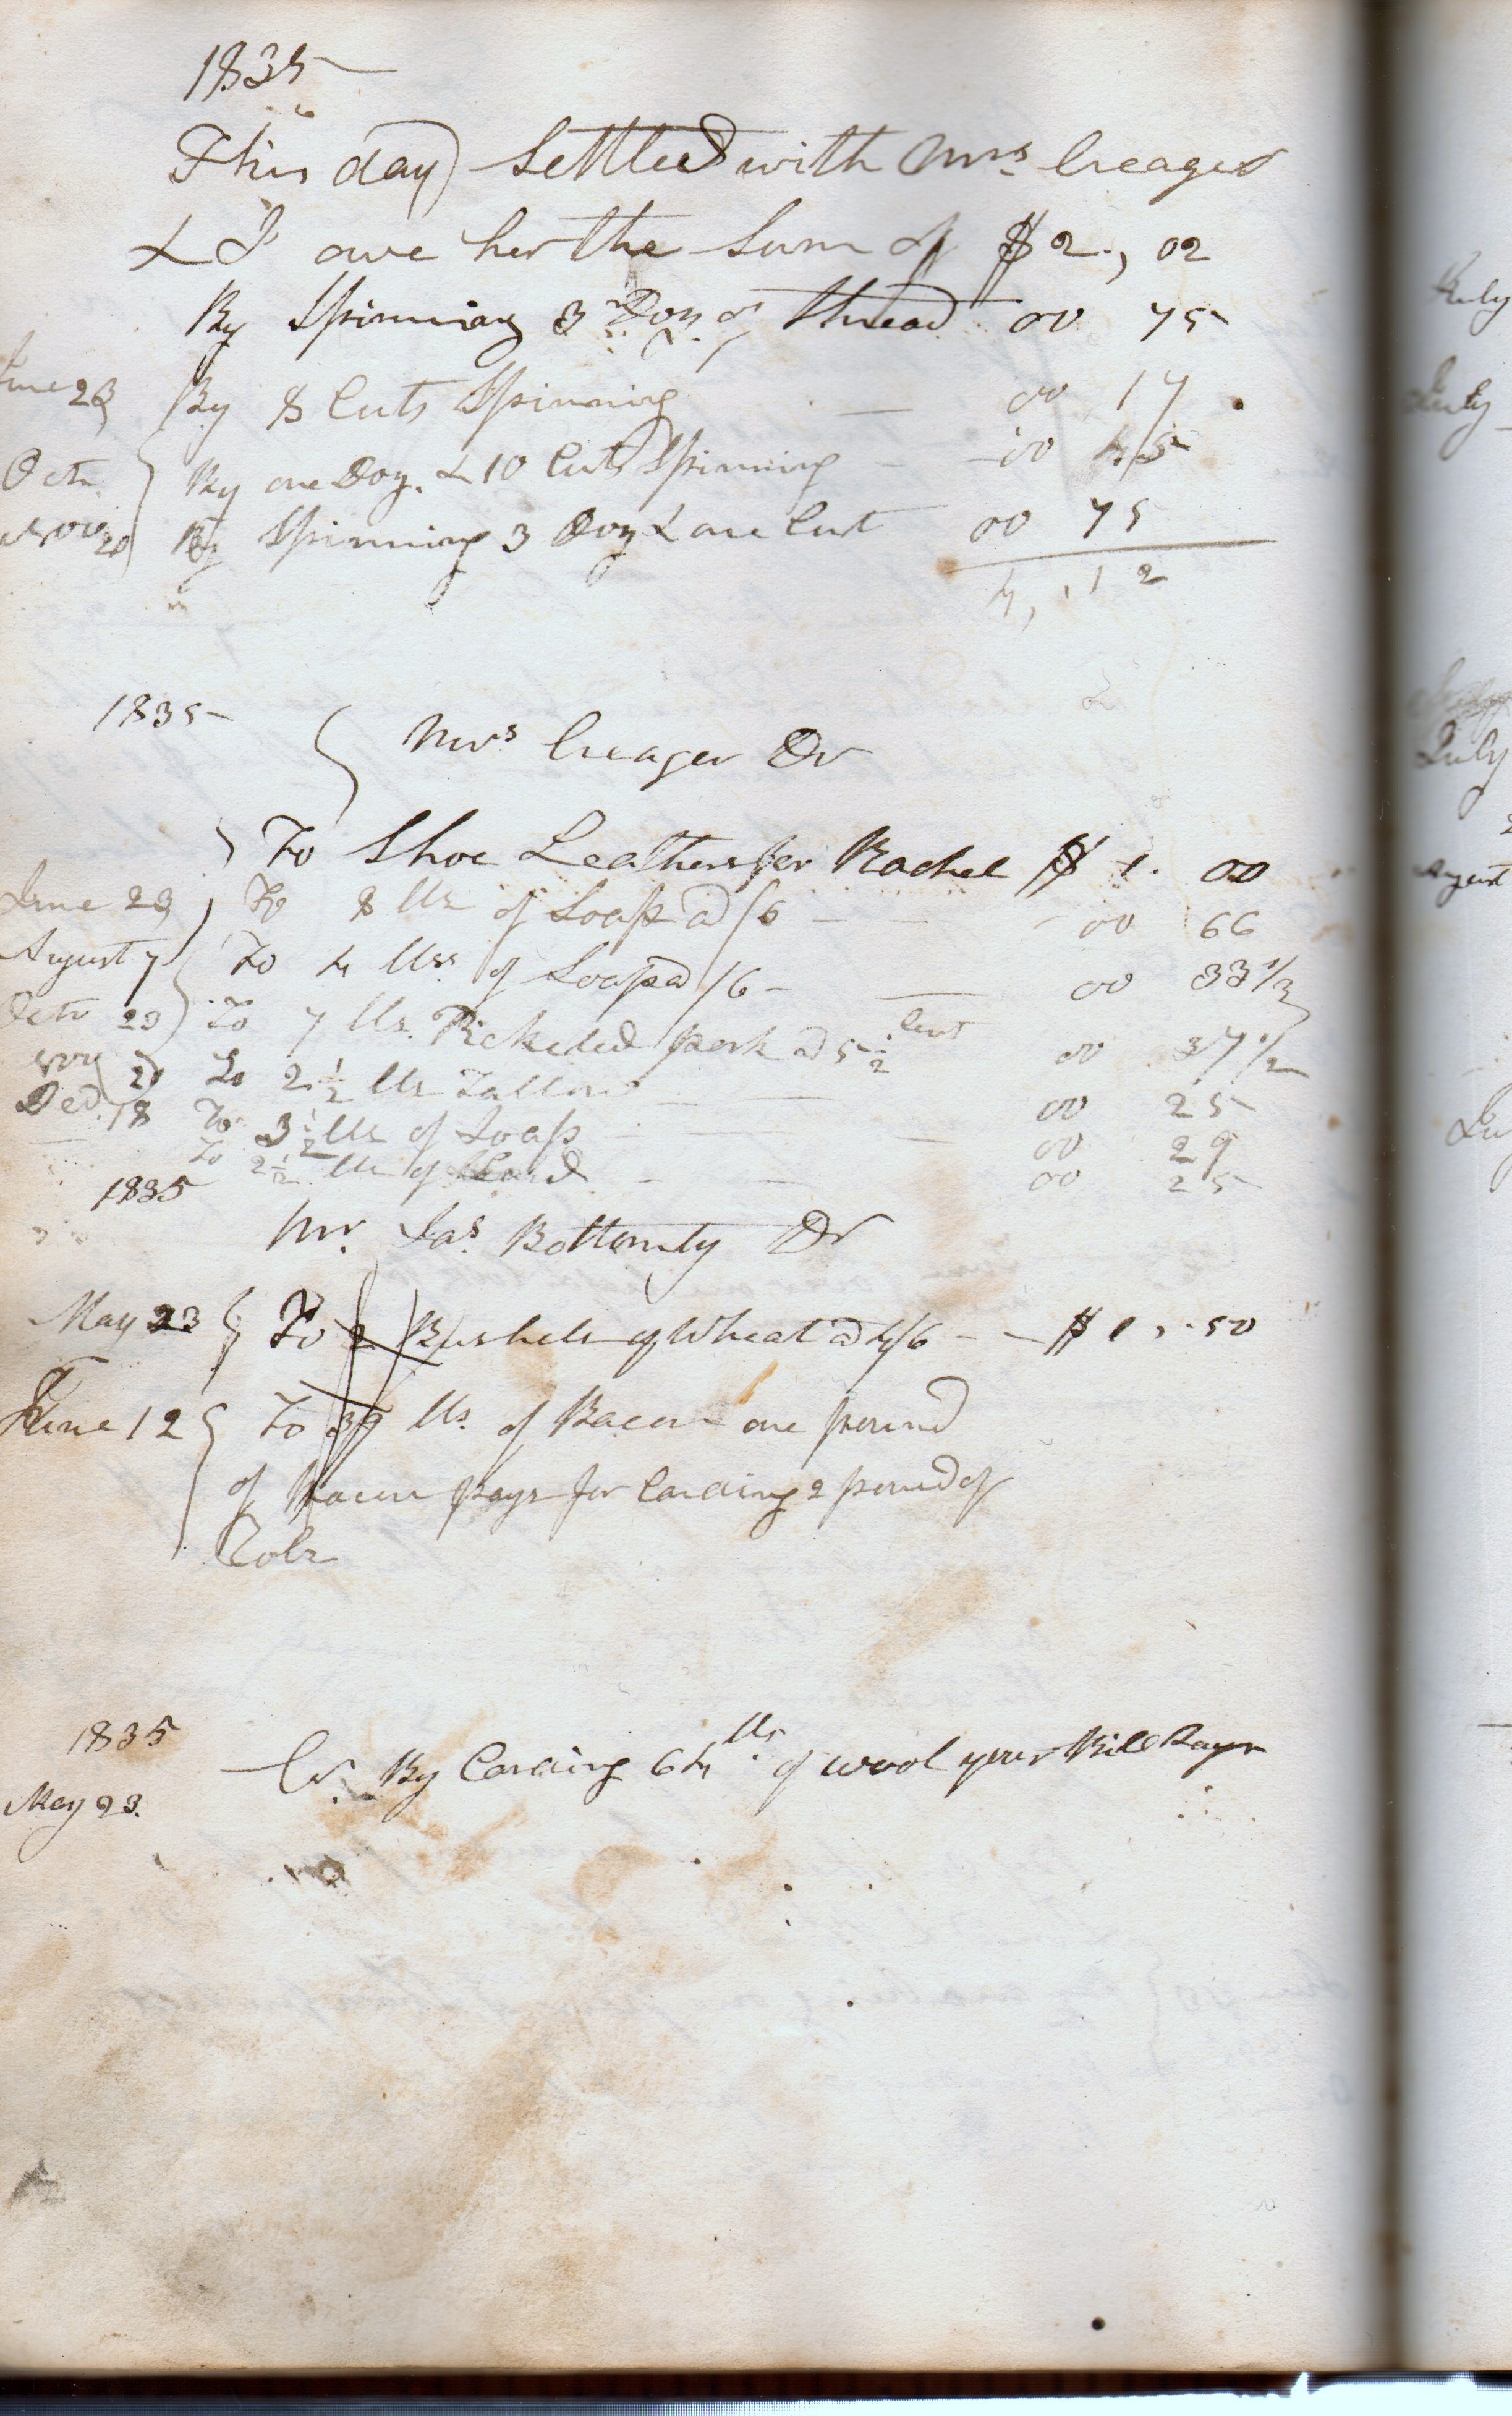 1835
This day Settled with Mrs Creager
& I owe her the Sum of $2., 02
By Spinning 3 Doz of thread 00 75
June 23 By 8 Cuts Spinning — 00 17
Octr. By one Doz. & 10 Cuts Spinning — 00 45
Nov 20 By Spinning 3 Doz & one Cut 00 75
4,,12
1835 Mrs Creager Dr
To Shoe Leathers for Rachel $ 1. 00
June 23 To 8 lbs of Soap a /6 — 00 66
August 7 To 4 lbs of Soap a /6 — 00 33 1/3
Octr 23 To 7 lbs. Pickeled pork a 5 1/2 Cent 00 37 1/2
Nov 20 To 2 1/2 lbs Tallow — 00 25
Dec 18 To 3 1/2 lbs of Soap — 00 29
To 2 1/2 lbs of Lard — 00 25
1835
Mr. Jas. Bottomly Dr
May 23 To 2 Bushels of Wheat a 4/6 — $ 1,.50
June 12 To 39 lbs. of Bacon one pound
of Bacon pays for Carding 2 pound of
Rolls
1835
May 23. Cr. By Carding 64 lbs of wool your Bill Says
July
July
July
August